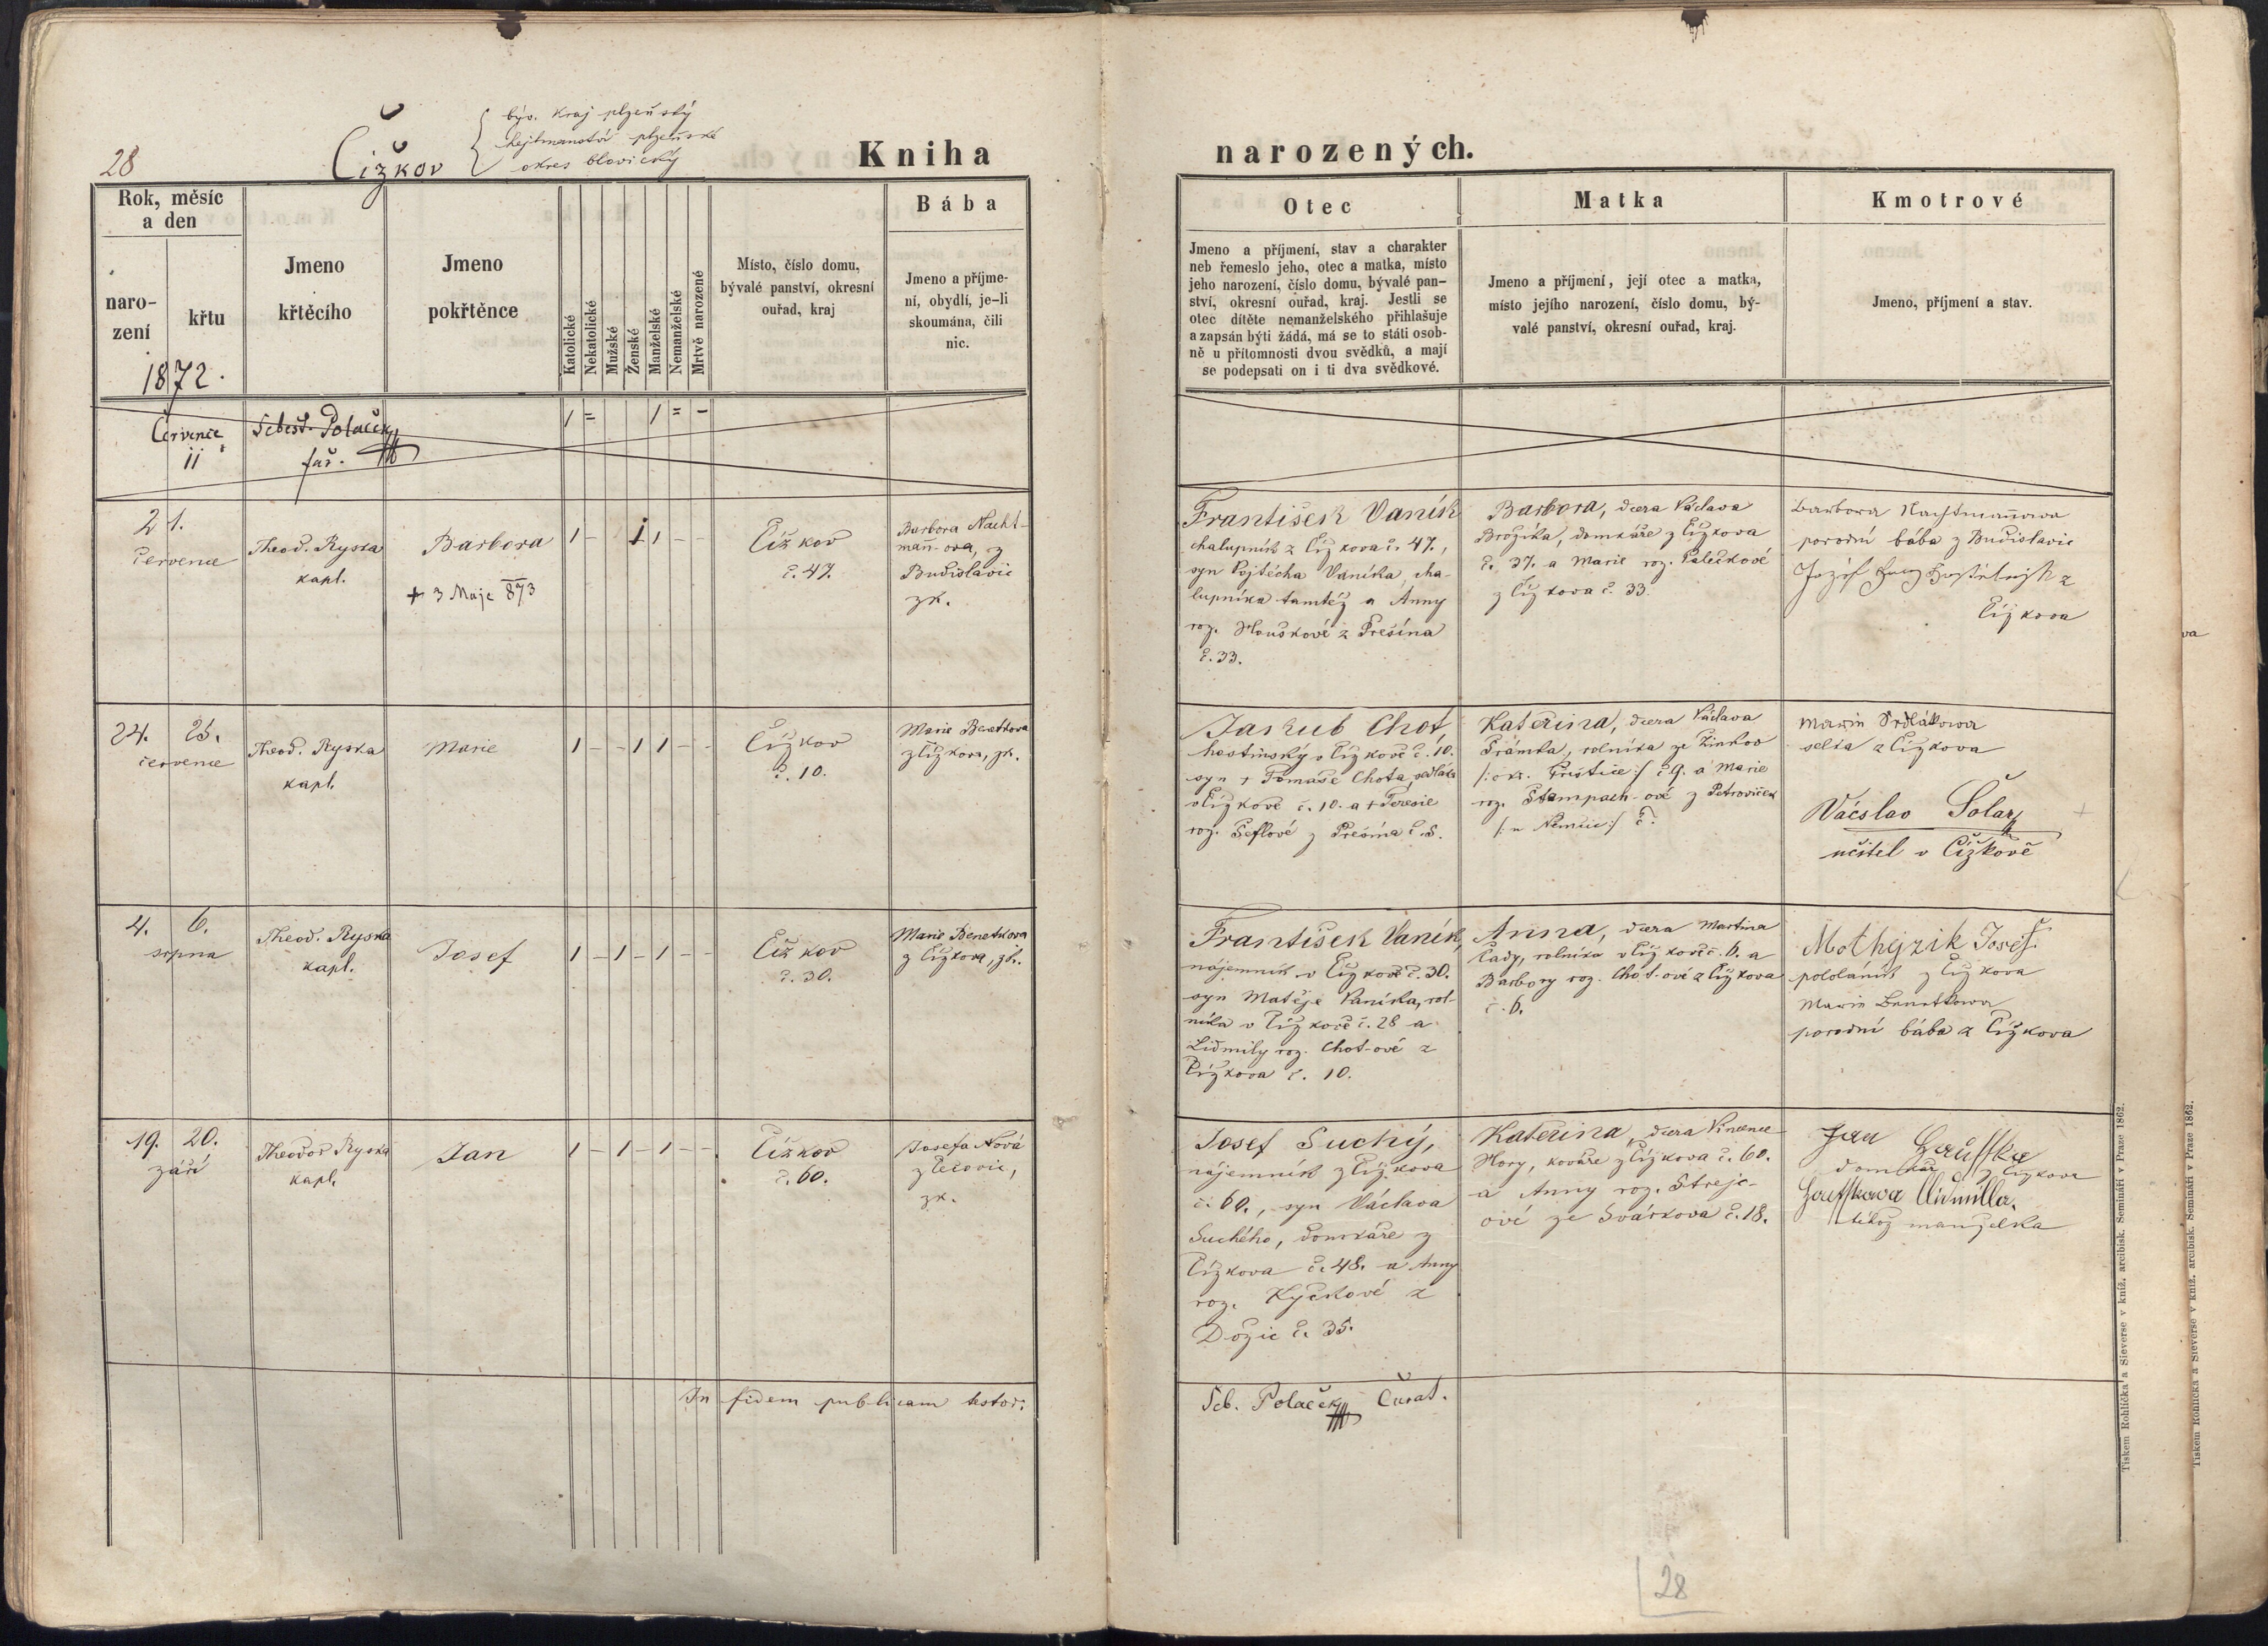 28
Čížkov
býv. kraj plzeňský
hejtmanství plzeňské
okres blovický
Kniha
narozených.
Rok, měsíc
a den
naro-
zení
křtu
1872.
Jmeno
křtěcího
Jmeno
pokřtěnce
Katolické
Nekatolické
Mužské
Ženské
Manželské
Nemanželské
Mrtvě narozené
Místo, číslo domu,
bývalé panství, okresní
ouřad, kraj
Bába
Jmeno a příjme-
ní, obydlí, je-li
skoumána, čili
nic.
Otec
Jmeno a příjmení, stav a charakter
neb řemeslo jeho, otec a matka, místo
jeho narození, číslo domu, bývalé pan-
ství, okresní ouřad, kraj. Jestli se
otec dítěte nemanželského přihlašuje
a zapsán býti žádá, má se to státi osob-
ně u přítomnosti dvou svědků, a mají
se podepsati on i ti dva svědkové.
Matka
Jmeno a příjmení, její otec a matka,
místo jejího narození, číslo domu, bý-
valé panství, okresní ouřad, kraj.
Kmotrové
Jmeno, příjmení a stav.
Července
11
Sebest. Polaček
far.
1 = 1 = –
21.
července
Theod. Ryska
kapl.
Barbora
+ 3 Maje 873
1 – 1 1 – –
Čížkov
č. 47.
Barbora Nacht-
mann-ova, z
Budislavic
zk.
František Vaník
chalupník z Čížkova č. 47.,
syn Vojtěcha Vaníka, cha-
lupníka tamtéž a Anny
roz. Houškové z Přešína
č. 33.
Barbora, dcera Václava
Brožíka, domkáře z Čížkova
č. 37. a Marie roz. Palečkové
z Čížkova č. 33.
Barbora Nachtmannova
porodní bába z Budislavic
Čížkova
24. 25.
července
Theod. Ryska
kapl.
Marie
1 – – 1 1 – –
Čížkov
č. 10.
Marie Benetkova
z Čížkova, zk.
Jakub Chot,
hostinský v Čížkově č. 10.
syn + Tomáše Chota, sedláka
v Čížkově č. 10. a + Terezie
roz. Šeflové z Přešína č. 5.
Kateřina, dcera Václava
Šrámka, rolníka ze Žinkov
č. 9. a Marie
roz. Štampach-ové z Petroviček
č.
selka z Čížkova
Václav Solar
učitel v Čížkově
4. 6.
srpna
Theod. Ryska
kapl.
Josef
1 – 1 – 1 – –
Čížkov
č. 30.
Marie Benetkova
z Čížkova, zk.
František Vaník,
nájemník v Čížkově č. 30.
syn Matěje Vaníka, rol-
níka v Čížkově č. 28 a
Lidmily roz. Chot-ové z
Čížkova č. 10.
Anna, dcera Martina
Čady, rolníka v Čížkově č. 6. a
Barbory roz. Chot-ové z Čížkova
č. 6.
Mothejzik Josef
pololáník z Čížkova
Marie Benetkova
porodní bába z Čížkova
19. 20.
září
Theodor Ryska
kapl.
Jan
1 – 1 – 1 – –
Čížkov
č. 60.
Josefa Nová
z Čečovic,
zk.
Josef Suchý,
nájemník z Čížkova
č. 60., syn Václava
Suchého, domkáře z
Čížkova č. 48. a Anny
roz. Kýčkové z
Dožic č. 35.
Kateřina, dcera Vincence
Hory, kováře z Čížkova č. 60.
a Anny roz. Strejc-
ové ze Svárkova č. 18.
Jan
domkář z Čížkova
Lidmilla
téhož manželka
In fidem publicam testor:
Seb. Polaček Curat.
28
Tiskem Rohlíčka a Sieverse v kníž. arcibisk. Semináři v Praze 1862.
Tiskem Rohlíčka a Sieverse v kníž. arcibisk. Semináři v Praze 1862.